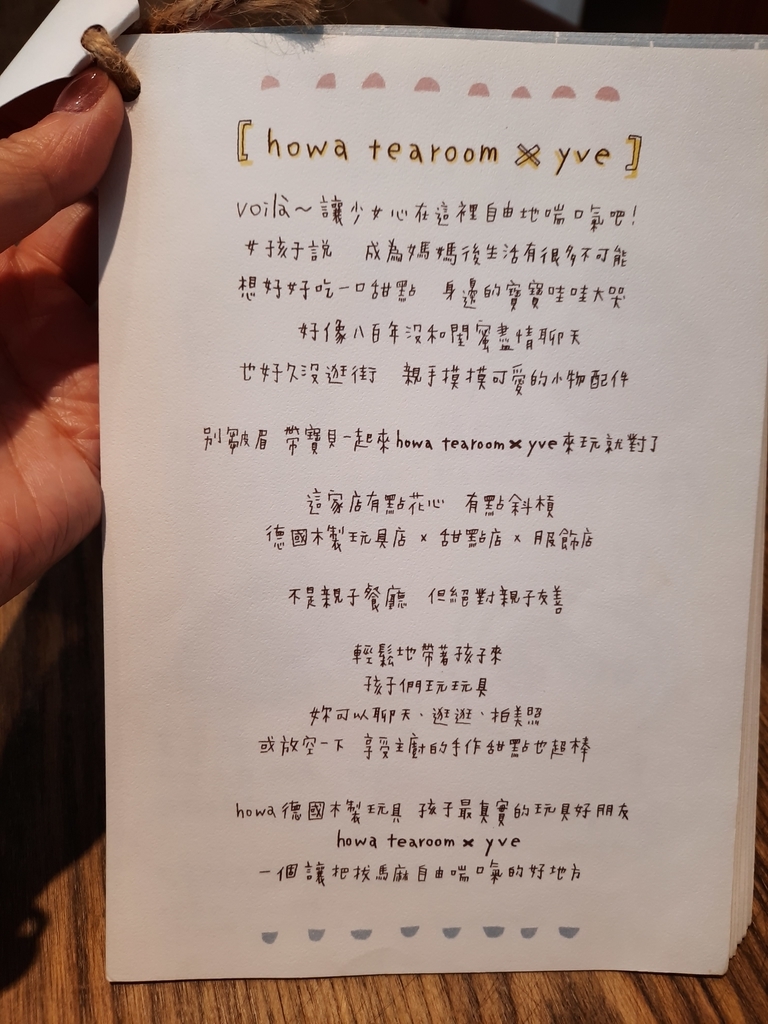 [ howa tearoom × yve ]
voilà～讓少女心在這裡自由地喘口氣吧！
女孩子說 成為媽媽後生活有很多不可能
想好好吃一口甜點 身邊的寶寶哇哇大哭
好像八百年沒和閨蜜盡情聊天
也好久沒逛街 親手摸摸可愛的小物配件
別皺眉 帶寶貝一起來howa tearoom × yve來玩就對了
這家店有點花心 有點斜槓
德國木製玩具店 × 甜點店 × 服飾店
不是親子餐廳 但絕對親子友善
輕鬆地帶著孩子來
孩子們玩玩具
妳可以聊天、逛逛、拍美照
或放空一下 享受主廚的手作甜點也超棒
howa德國木製玩具 孩子最真實的玩具好朋友
howa tearoom × yve
一個讓把拔馬麻自由喘口氣的好地方